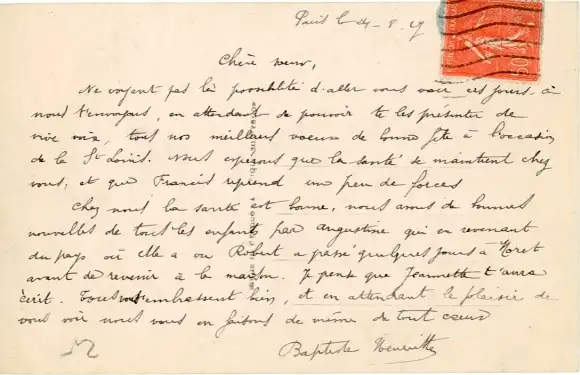 Paris le 24-8-27
Chère sœur,
Ne voyant pas la possibilité d'aller vous voir ces jours-ci
nous t'envoyons, en attendant de pouvoir te les présenter de
vive voix, tous nos meilleurs vœux de bonne fête à l'occasion
de la St Louis. Nous espérons que la santé se maintient chez
vous, et que Francis reprend un peu de forces
Chez nous la santé est bonne, nous avons de bonnes
nouvelles de tous les enfants par Augustine qui en revenant
du pays où elle a vu Robert a passé quelques jours à Moret
avant de revenir à la maison. Je pense que Jeannette t'aura
écrit. Tous vous embrassent bien, et en attendant le plaisir de
vous voir nous vous en faisons de même de tout cœur
Baptiste Henriette
50